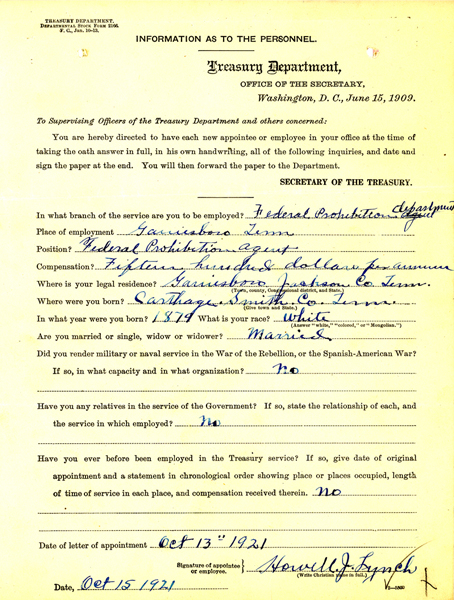 TREASURY DEPARTMENT.
DEPARTMENTAL STOCK FORM 2106.
INFORMATION AS TO THE PERSONNEL.
Treasury Department,
OFFICE OF THE SECRETARY,
Washington, D. C., June 15, 1909.
To Supervising Officers of the Treasury Department and others concerned:
You are hereby directed to have each new appointee or employee in your office at the time of
taking the oath answer in full, in his own handwriting, all of the following inquiries, and date and
sign the paper at the end. You will then forward the paper to the Department.
SECRETARY OF THE TREASURY.
In what branch of the service are you to be employed? Federal Prohibition department
agent
Place of employment Gainesboro Tenn
Position? Federal Prohibition agent
Compensation? Fifteen hundred dollars per annum
Where is your legal residence? Gainesboro Jackson Co. Tenn.
(Town, county, Congressional district, and State.)
Where were you born? Carthage Smith Co. Tenn.
(Give town and State.)
In what year were you born? 1879 What is your race? White
(Answer "white," "colored," or "Mongolian.")
Are you married or single, widow or widower? Married
Did you render military or naval service in the War of the Rebellion, or the Spanish-American War?
If so, in what capacity and in what organization? No
Have you any relatives in the service of the Government? If so, state the relationship of each, and
the service in which employed? No
Have you ever before been employed in the Treasury service? If so, give date of original
appointment and a statement in chronological order showing place or places occupied, length
of time of service in each place, and compensation received therein. No
Date of letter of appointment Oct 13" 1921
Signature of appointee or employee. Howell J. Lynch
(Write Christian name in full.)
Date, Oct 15 1921